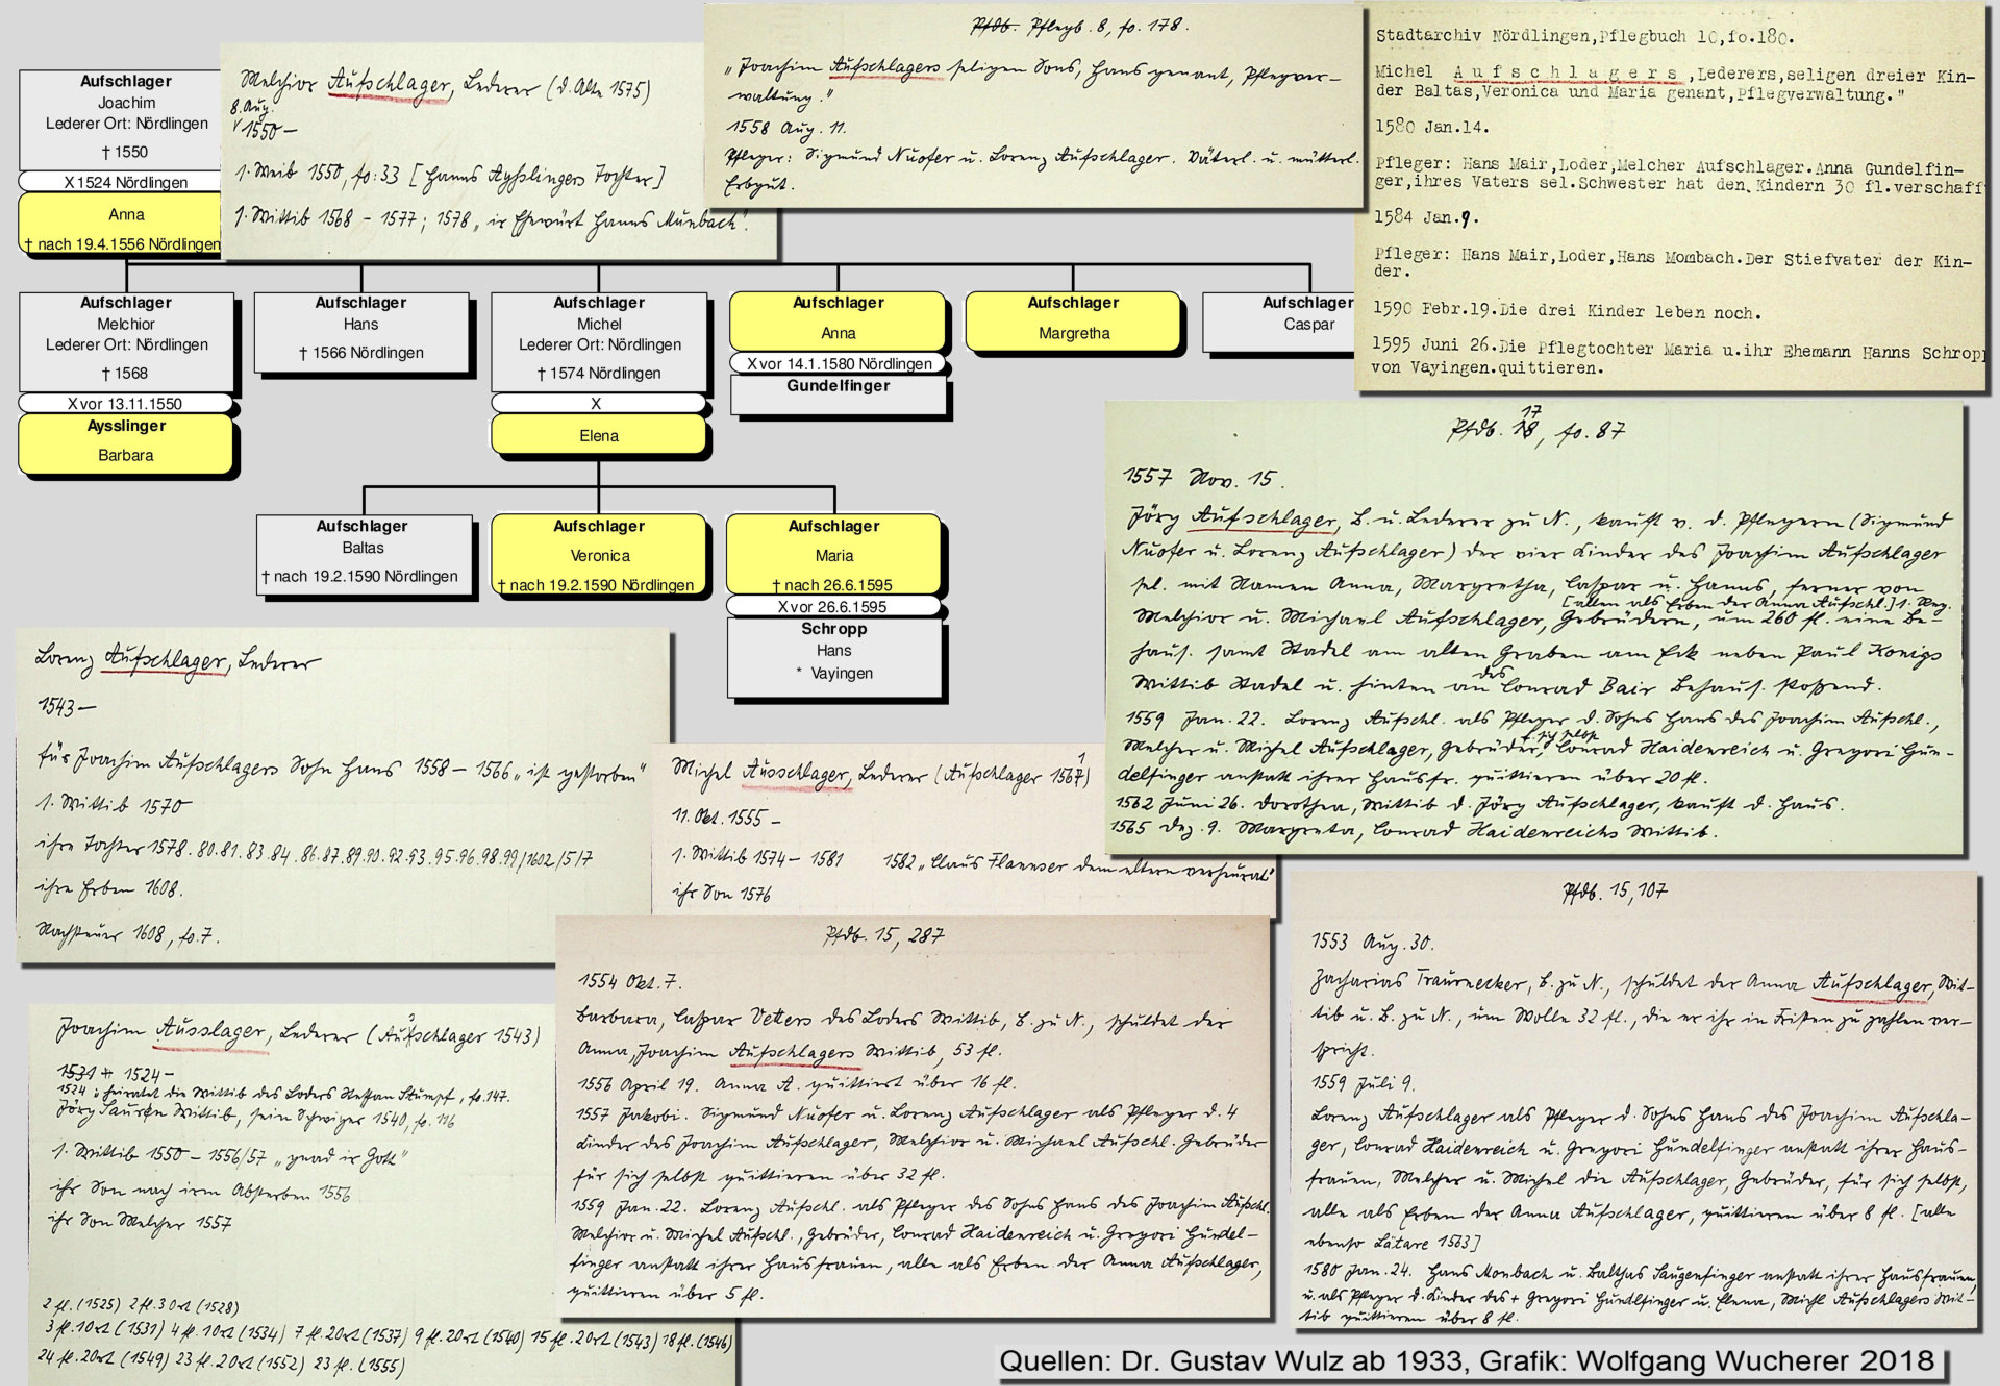 Aufschlager
Joachim
Lederer Ort: Nördlingen
† 1550
X 1524 Nördlingen
Anna
† nach 19.4.1556 Nördlingen
Melchior Aufschlager, Lederer (d. Alte 1575)
8. Aug.
1550 –
1. Weib 1550, fo: 33 [Hanns Aysslingers Tochter]
1. Wittib 1568 – 1577; 1578, ir Ehewürt Hanns Munbach".
Pfdb. Pflegb. 8, fo. 178.
"Joachim Aufschlagers seligen Sons, Hans genant, Pflegver-
waltung."
1558 Aug. 11.
Pfleger: Sigmund Nuofer u. Lorenz Aufschlager. Väterl. u. mütterl.
Erbgut.
Stadtarchiv Nördlingen,Pflegbuch 10,fo.180.
Michel Aufschlagers,Lederers,seligen dreier Kin-
der Baltas,Veronica und Maria genant,Pflegverwaltung."
1580 Jan.14.
Pfleger: Hans Mair,Loder,Melcher Aufschlager.Anna Gundelfin-
ger,ihres Vaters sel.Schwester hat den Kindern 30 fl.verschaff
1584 Jan.9.
Pfleger: Hans Mair,Loder,Hans Mombach.Der Stiefvater der Kin-
der.
1590 Febr.19.Die drei Kinder leben noch.
1595 Juni 26.Die Pflegtochter Maria u.ihr Ehemann Hanns Schropp
von Vayingen.quittieren.
Aufschlager
Melchior
Lederer Ort: Nördlingen
† 1568
X vor 13.11.1550
Aysslinger
Barbara
Aufschlager
Hans
† 1566 Nördlingen
Aufschlager
Michel
Lederer Ort: Nördlingen
† 1574 Nördlingen
X
Elena
Aufschlager
Anna
X vor 14.1.1580 Nördlingen
Gundelfinger
Aufschlager
Margretha
Aufschlager
Caspar
Aufschlager
Baltas
† nach 19.2.1590 Nördlingen
Aufschlager
Veronica
† nach 19.2.1590 Nördlingen
Aufschlager
Maria
† nach 26.6.1595
X vor 26.6.1595
Schropp
Hans
* Vayingen
Pfdb. 18, fo. 87
17
1557 Nov. 15.
Jörg Aufschlager, B. u. Lederer zu N., kauft v. d. Pflegern (Sigmund
Nuofer u. Lorenz Aufschlager) der vier Kinder des Joachim Aufschlager
sel. mit Namen Anna, Margretha, Caspar u. Hanns, ferner von
[allen als Erben der Anna Aufschl.]
Melchior u. Michael Aufschlager, Gebrüdern, um 260 fl. eine Be-
haus. samt Stadel am alten Graben am Eck neben Paul Königs
Wittib Stadel u. hinten an des Conrad Bair Behaus. stossend.
1559 Jan. 22. Lorenz Aufschl. als Pfleger d. Sohns Hans des Joachim Aufschl.,
Melcher u. Michel Aufschlager, Gebrüder, f. sich selbst Conrad Haidenreich u. Gregori Gun-
delfinger anstatt ihrer Hausfr. quittieren über 20 fl.
1562 Juni 26. Dorothea, Wittib d. Jörg Aufschlager, kauft d. Haus.
1565 Dez. 9. Margreta, Conrad Haidenreichs Wittib.
Lorenz Aufschlager, Lederer
1543 –
für Joachim Aufschlagers Sohn Hans 1558 – 1566 "ist gestorben"
1. Wittib 1570
ihre Tochter 1578.80.81.83.84.86.87.89.90.92.93.95.96.98.99/1602/5/7
ihre Erben 1608.
Nachsteuer 1608, fo. 7.
Michel Ausschlager, Lederer (Aufschlager 1567)
1
11. Okt. 1555 –
1. Wittib 1574 – 1581 1582 "Claus Flannser dem eltern verheurat"
ihr Son 1576
Pfdb. 15, 287
1554 Okt. 7.
Barbara, Caspar Vetters des Loders Wittib, B. zu N., schuldet der
Anna, Joachim Aufschlagers Wittib, 53 fl.
1556 April 19. Anna A. quittiert über 16 fl.
1557 Jakobi. Sigmund Nuofer u. Lorenz Aufschlager als Pfleger d. 4
Kinder des Joachim Aufschlager, Melchior u. Michael Aufschl. Gebrüder
für sich selbst quittieren über 32 fl.
1559 Jan. 22. Lorenz Aufschl. als Pfleger des Sohns Hans des Joachim Aufschl.
Melchior u. Michel Aufschl., Gebrüder, Conrad Haidenreich u. Gregori Gundel-
finger anstatt ihrer Hausfrauen, alle als Erben der Anna Aufschlager,
quittieren über 5 fl.
Pfdb. 15, 107
1553 Aug. 30.
Zacharias Traunecker, B. zu N., schuldet der Anna Aufschlager, Wit-
tib u. B. zu N., um Wolle 32 fl., die er ihr in Fristen zu zahlen ver-
spricht.
1559 Juli 9.
Lorenz Aufschlager als Pfleger d. Sohns Hans des Joachim Aufschla-
ger, Conrad Haidenreich u. Gregori Gundelfinger anstatt ihrer Haus-
frauen, Melcher u. Michel die Aufschlager, Gebrüder, für sich selbst,
alle als Erben der Anna Aufschlager, quittieren über 8 fl. [alle
ebenso Lätare 1563]
1580 Jan. 24. Hans Monbach u. Balthas Saugenfinger anstatt ihrer Hausfrauen,
u. als Pfleger d. Kinder des † Gregori Gundlfinger u. Elena, Michl Aufschlagers Wit-
tib quittieren über 8 fl.
Joachim Ausslager, Lederer (Aufschlager 1543)
1531 1524 –
1524: heiratet die Wittib des Loders Steffan Stumpf, fo. 147.
Jörg Wittib, sein Schwiger 1540, fo. 116
1. Wittib 1550 – 1556/57 "gnad ir Gott"
ihr Son nach irm Absterben 1556
ihr Son Melcher 1557
2 fl. (1525) 2 fl. 3 ort (1528)
3 fl. 10 (1531) 4 fl. 10 (1534) 7 fl. 20 (1537) 9 fl. 20 (1540) 15 fl. 20 (1543) 18 fl. (1546)
24 fl. 20 (1549) 23 fl. 20 (1552) 23 fl. (1555)
Quellen: Dr. Gustav Wulz ab 1933, Grafik: Wolfgang Wucherer 2018